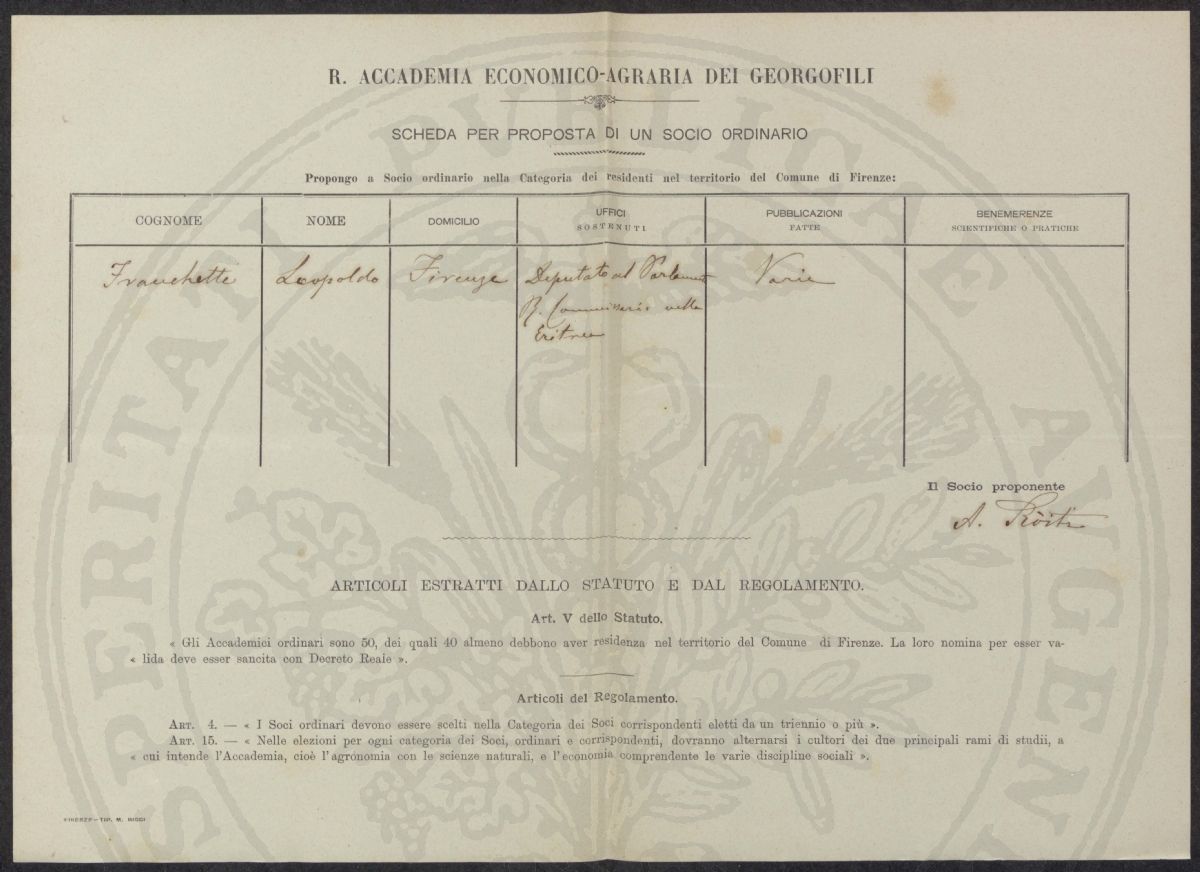 R. ACCADEMIA ECONOMICO-AGRARIA DEI GEORGOFILI
SCHEDA PER PROPOSTA DI UN SOCIO ORDINARIO
Propongo a Socio ordinario nella Categoria dei residenti nel territorio del Comune di Firenze:
COGNOME NOME DOMICILIO UFFICI SOSTENUTI PUBBLICAZIONI FATTE BENEMERENZE SCIENTIFICHE O PRATICHE
Franchetti Leopoldo Firenze Deputato al Parlamento Varie
R. Commissario nella
Eritrea
Il Socio proponente
A.
ARTICOLI ESTRATTI DALLO STATUTO E DAL REGOLAMENTO.
Art. V dello Statuto.
« Gli Accademici ordinari sono 50, dei quali 40 almeno debbono aver residenza nel territorio del Comune di Firenze. La loro nomina per esser va-
« lida deve esser sancita con Decreto Reale ».
Articoli del Regolamento.
ART. 4. — « I Soci ordinari devono essere scelti nella Categoria dei Soci corrispondenti eletti da un triennio o più ».
ART. 15. — « Nelle elezioni per ogni categoria dei Soci, ordinari e corrispondenti, dovranno alternarsi i cultori dei due principali rami di studii, a
« cui intende l'Accademia, cioè l'agronomia con le scienze naturali, e l'economia comprendente le varie discipline sociali ».
FIRENZE—TIP. M. RICCI
PROSPERITATI PUBLICAE AVGENDAE